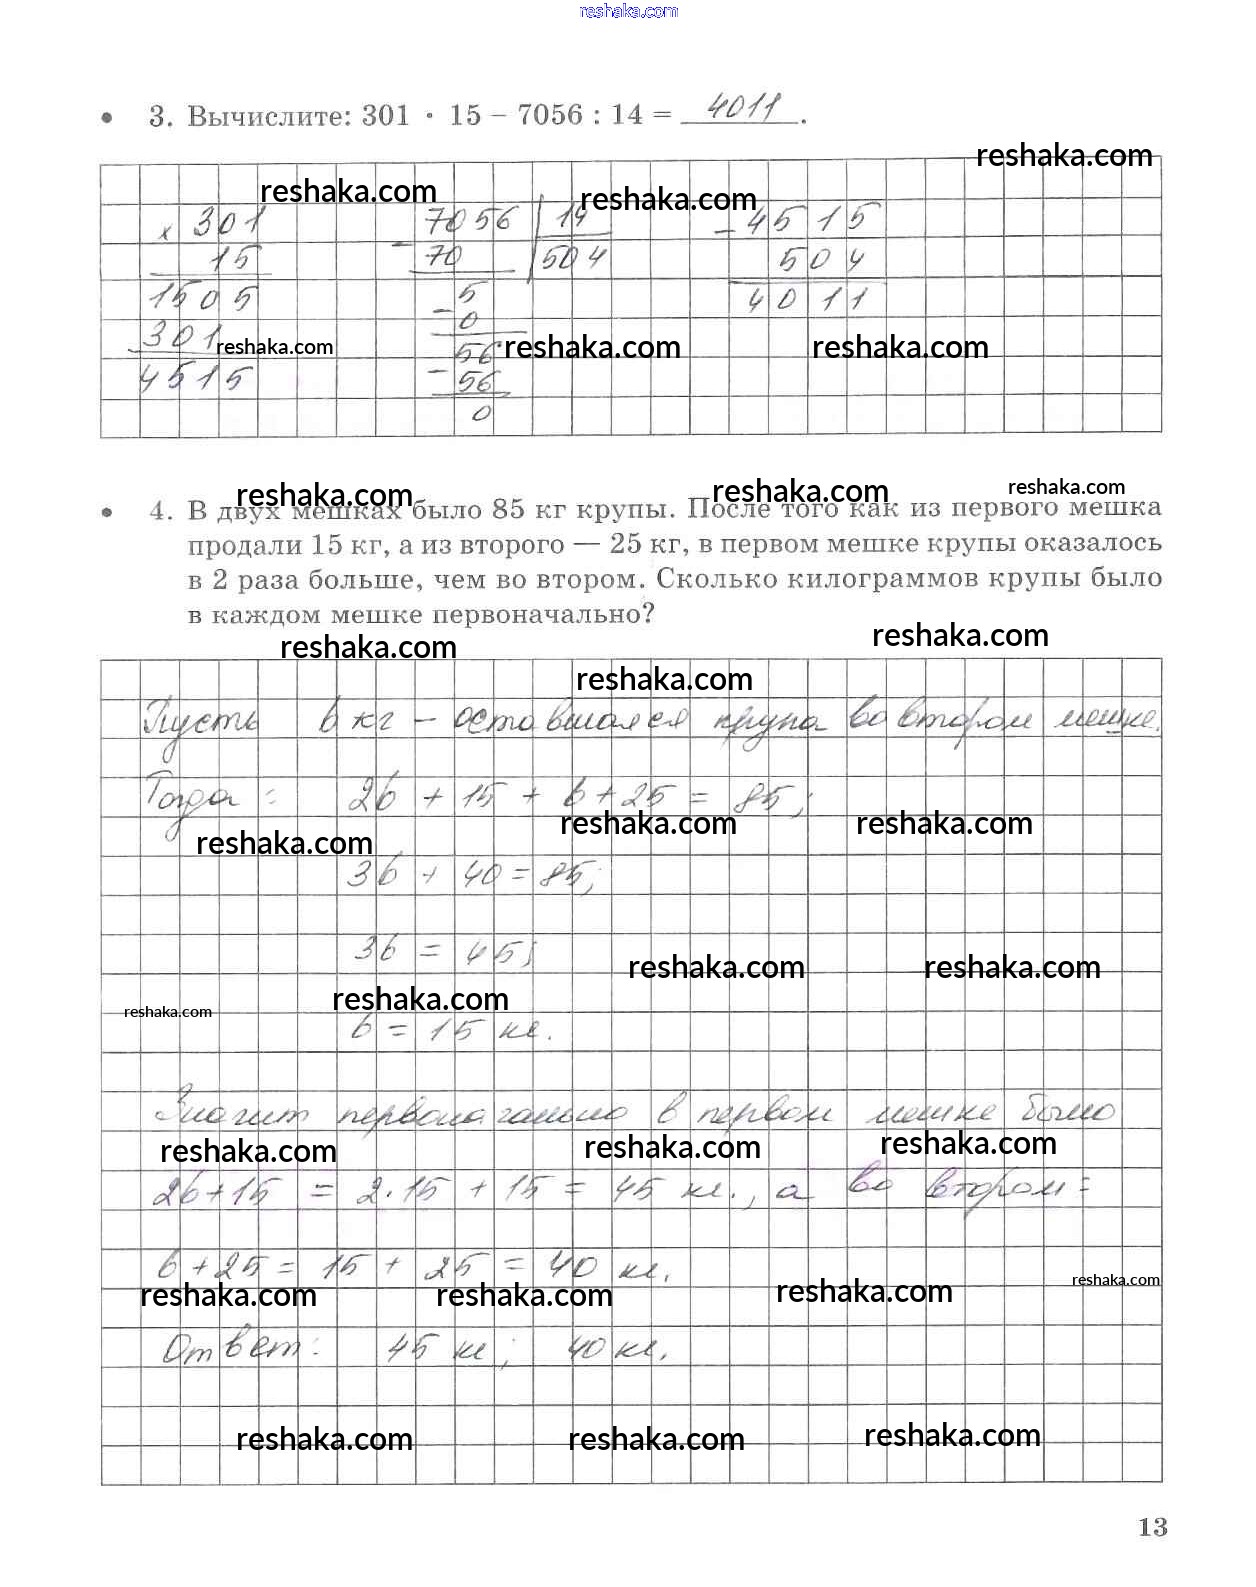 reshaka.com
• 3. Вычислите: 301 · 15 – 7056 : 14 = 4011.
reshaka.com
reshaka.com reshaka.com
× 301 – 7056 | 14 – 4515
15 70 504 504
1505 – 5 4011
0
301 reshaka.com 56 reshaka.com reshaka.com
4515 – 56
0
reshaka.com reshaka.com reshaka.com
• 4. В двух мешках было 85 кг крупы. После того как из первого мешка
продали 15 кг, а из второго — 25 кг, в первом мешке крупы оказалось
в 2 раза больше, чем во втором. Сколько килограммов крупы было
в каждом мешке первоначально?
reshaka.com reshaka.com
reshaka.com
Пусть b кг – оставшаяся крупа во втором мешке.
Тогда: 2b + 15 + b + 25 = 85;
reshaka.com reshaka.com reshaka.com
3b + 40 = 85;
3b = 45;
reshaka.com reshaka.com
reshaka.com reshaka.com
b = 15 кг.
Значит первоначально в первом мешке было
reshaka.com reshaka.com reshaka.com
2b + 15 = 2 · 15 + 15 = 45 кг., а во втором =
b + 25 = 15 + 25 = 40 кг.
reshaka.com reshaka.com reshaka.com reshaka.com
Ответ: 45 кг; 40 кг.
reshaka.com reshaka.com reshaka.com
13